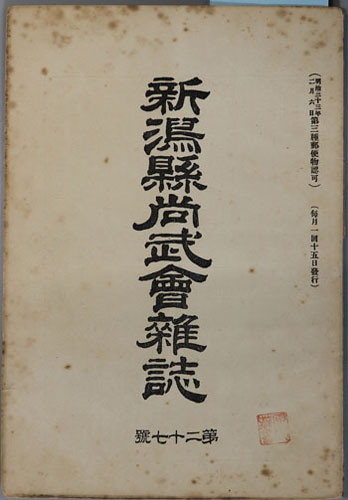 (明治三十三年二月六日第三種郵便物認可)
(毎月一回十五日發行)
新潟縣尚武會雜誌
第二十七號